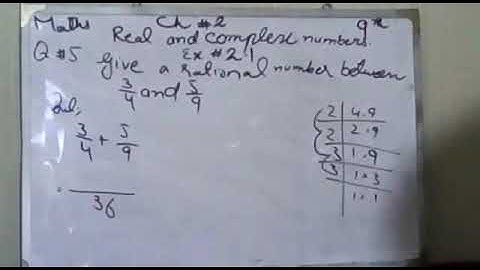 Maths Ch #2 9th
Real and complex numbers.
Ex # 2.1
Q #5 give a rational number between
3/4 and 5/9
Sol,
3/4 + 5/9
= /36
2 | 4.9
2 | 2.9
3 | 1.9
3 | 1.3
| 1.1